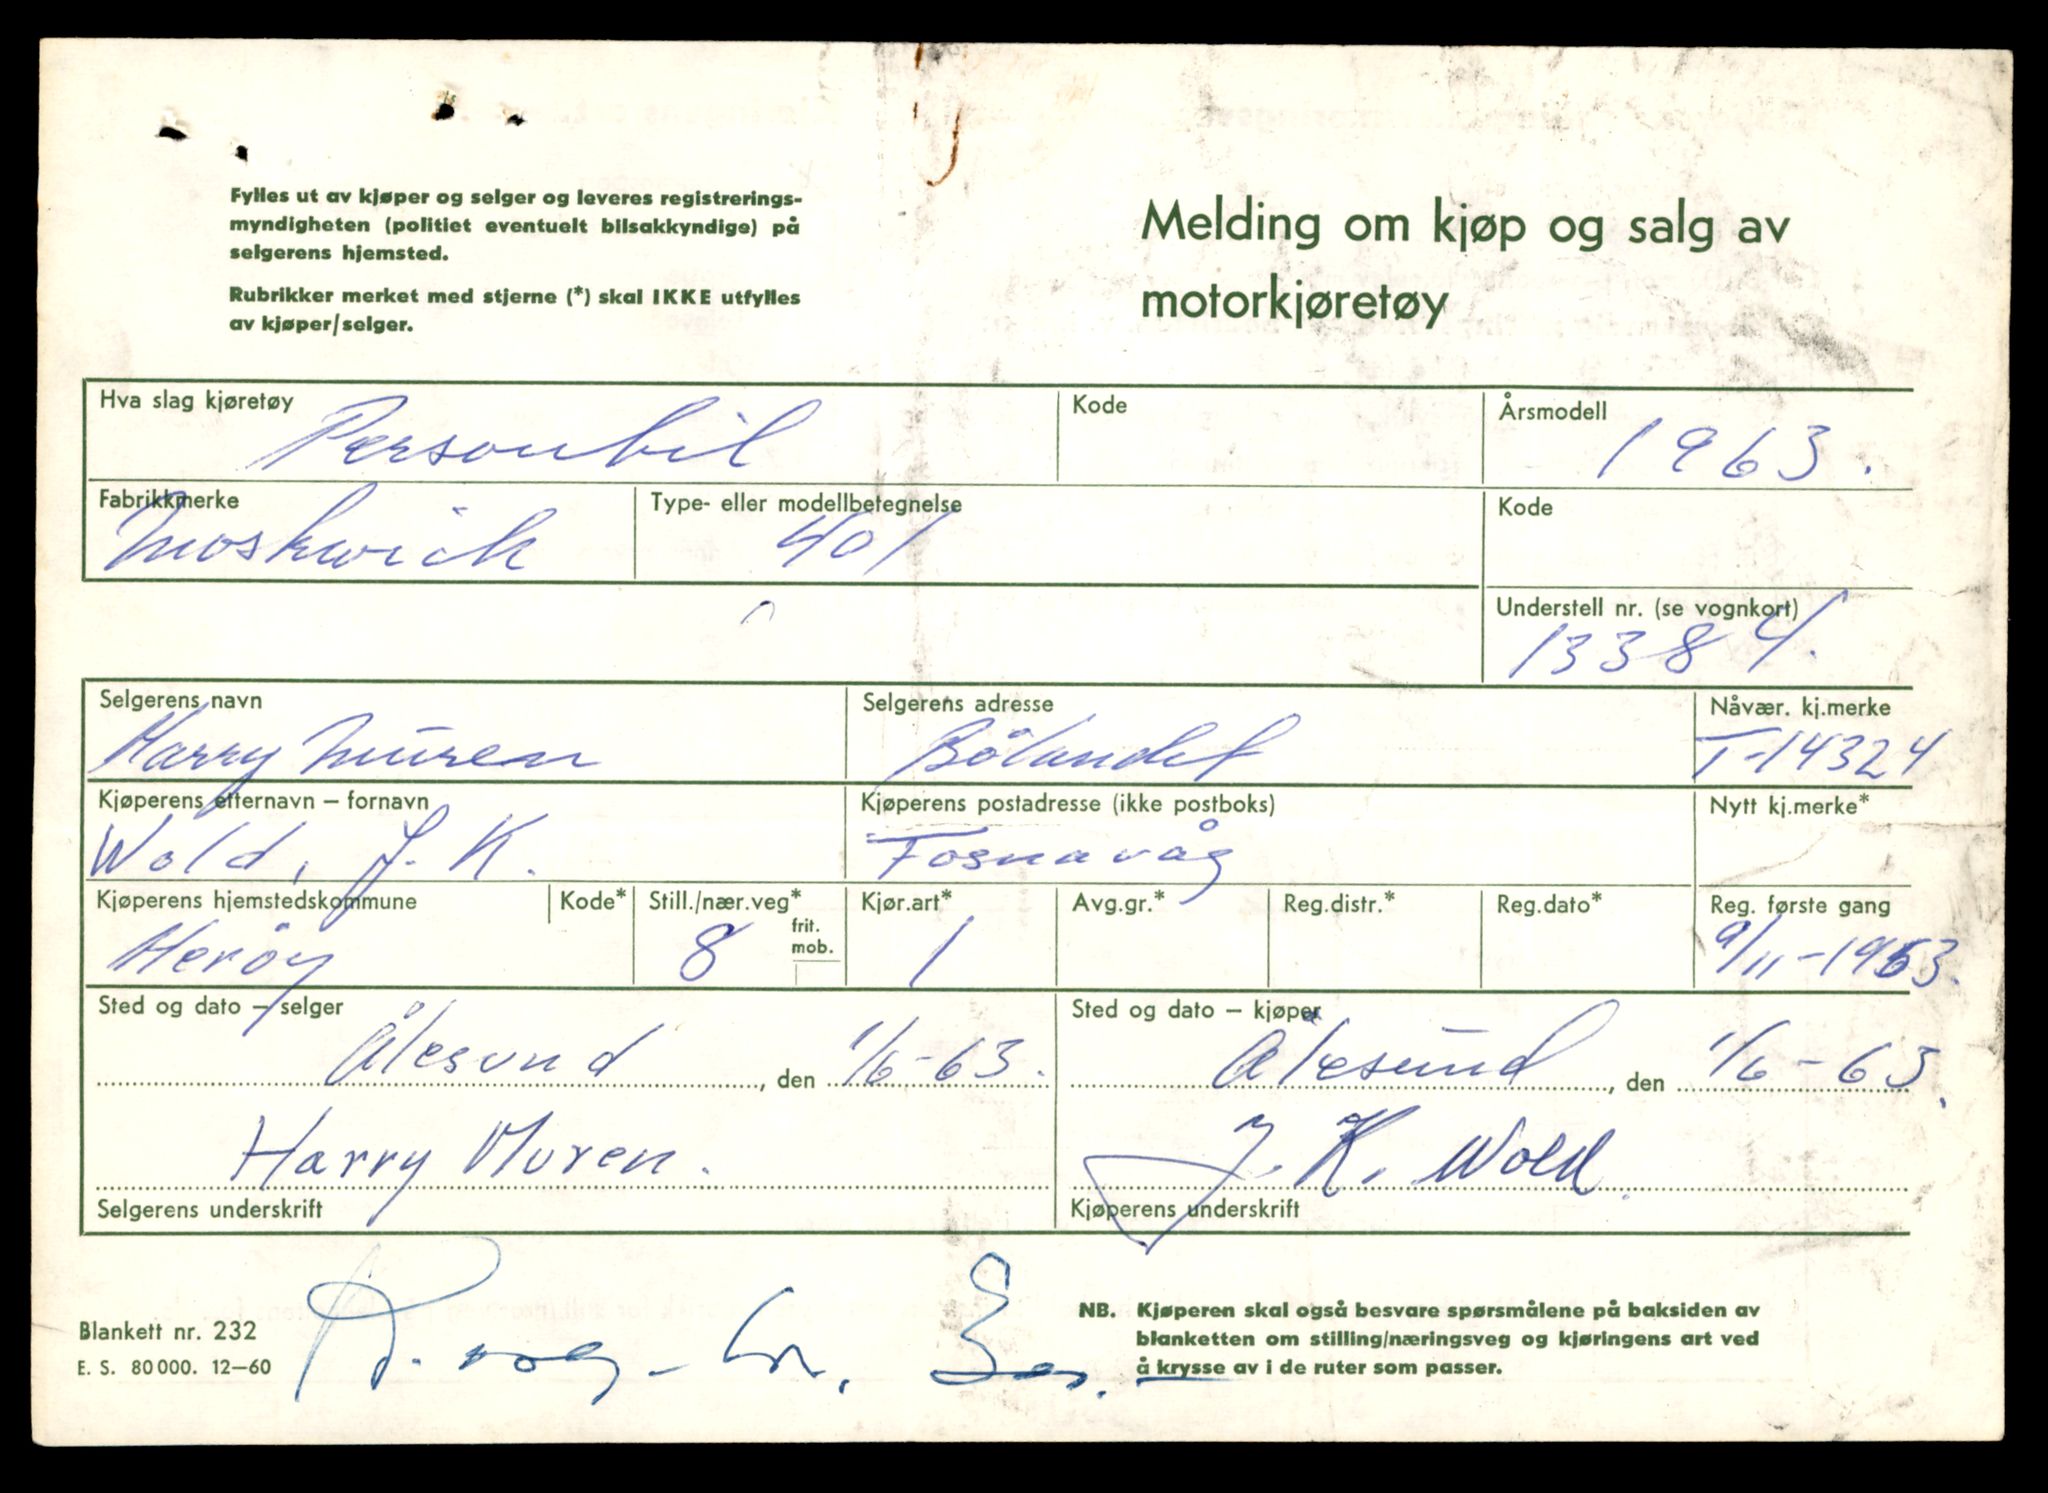 Fylles ut av kjøper og selger og leveres registrerings-
myndigheten (politiet eventuelt bilsakkyndige) på
selgerens hjemsted.
Rubrikker merket med stjerne (*) skal IKKE utfylles
av kjøper/selger.
Melding om kjøp og salg av
motorkjøretøy
Hva slag kjøretøy
Personbil
Kode
Årsmodell
1963.
Fabrikkmerke
Moskwich
Type- eller modellbetegnelse
401
Kode
Understell nr. (se vognkort)
13384.
Selgerens navn
Harry Muren
Selgerens adresse
Bølandet
Nåvær. kj.merke
T-14324
Kjøperens etternavn – fornavn
Wold, J. K.
Kjøperens postadresse (ikke postboks)
Fosnavåg
Nytt kj.merke*
Kjøperens hjemstedskommune
Herøy
Kode*
Still./nær.veg*
8
frit.
mob.
Kjør.art*
1
Avg.gr.*
Reg.distr.*
Reg.dato*
Reg. første gang
9/11-1963.
Sted og dato – selger
Ålesund, den 1/6-63.
Harry Muren.
Selgerens underskrift
Sted og dato – kjøper
Ålesund, den 1/6-63.
J. K. Wold.
Kjøperens underskrift
Blankett nr. 232
E. S. 80 000. 12—60
NB. Kjøperen skal også besvare spørsmålene på baksiden av
blanketten om stilling/næringsveg og kjøringens art ved
å krysse av i de ruter som passer.